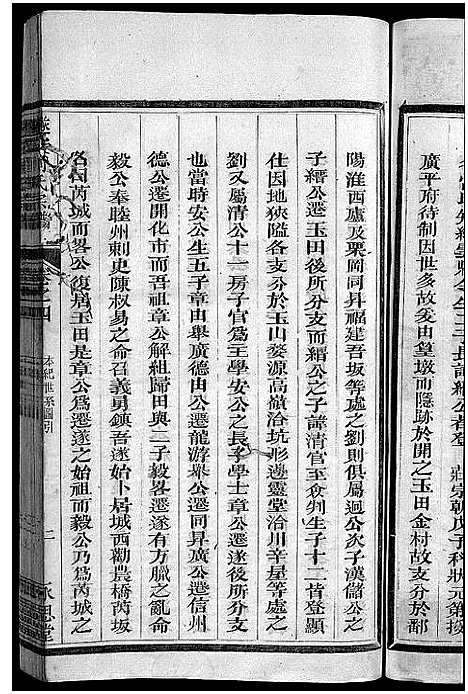 廣平府待制因世多故爰由皇墩而隱跡於開之玉田金村故支分於鄱
陽淮西盧及栗岡同昇福建吾坂等處之劉則俱屬迥公次子漢儲公之
子縉公遷玉田後所分支而縉公之子諱清官至僉判生子十二皆登顯
仕因地狹隘各支分於玉山婺源高嶺治坑形邊靈堂治川辛星等處之
劉又屬清公十一房子官爲王學安公之長子學士章公遷遂後所分支
也當時安公生五子章由舉廣德由公遷龍游舉公遷同昇廣公遷信州
德公遷開化市而吾祖章公解組歸田與二子毅畧遷遂有方臘之亂命
毅公奉睦州刺史陳权易之命召義勇鎮吾遂始卜居城西勸農橋芮坂
名曰芮城而畧公復居玉田是章公爲遷遂之始祖而毅公乃爲芮城之
卷之四
本紀世系圖引
二
承恩堂